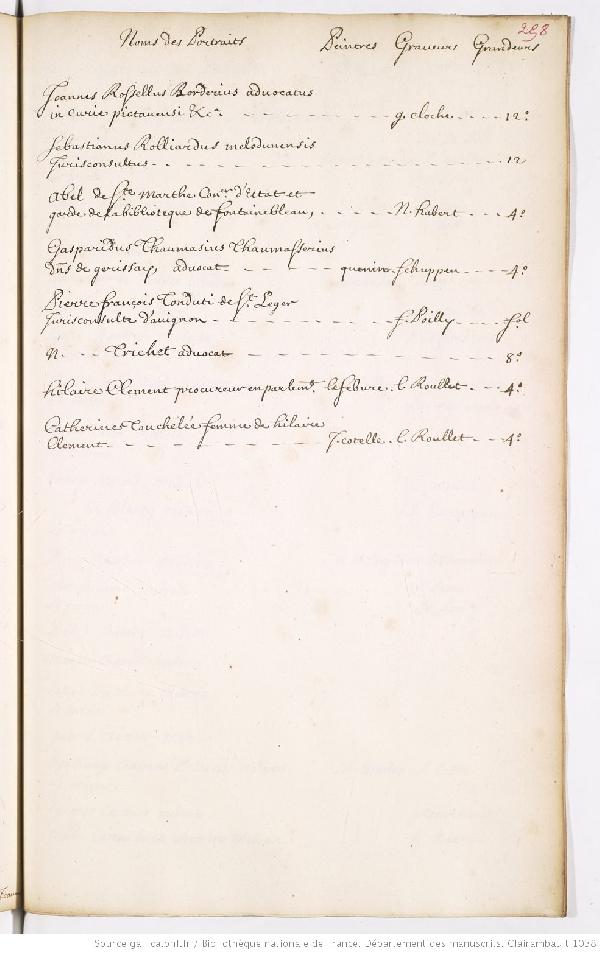 298
Noms des Portraits Peintres Graveurs Grandeurs
Joannes Rossellus Borderius advocatus
in curie pictauensi &ca - - - g. cloche - - - 12°
Sebastianus Rolliardus melodunensis
Jurisconsultus - - - 12
Abel de Ste marthe Coner d'Estat et
garde de la biblioteque de fontainebleau, - - - N. habert - - - 4°
Gaspardus Thaumasius Thaumasserius
Dns de advocat - - - Schuppen - - - 4°
Pierre françois Tonduti de St Leger
Jurisconsulte d'avignon - - - f. Poilly - - - fol
N. - - Trichet advocat - - - 8°
hilaire Clement procureur en parlemt. lefebure. l. Roullet - - - 4°
Catherine Touchelée femme de hilaire
Clement - - - J. cotelle. l. Roullet - - - 4°
Source gallica.bnf.fr / Bibliothèque nationale de France. Département des manuscrits. Clairambault 1038